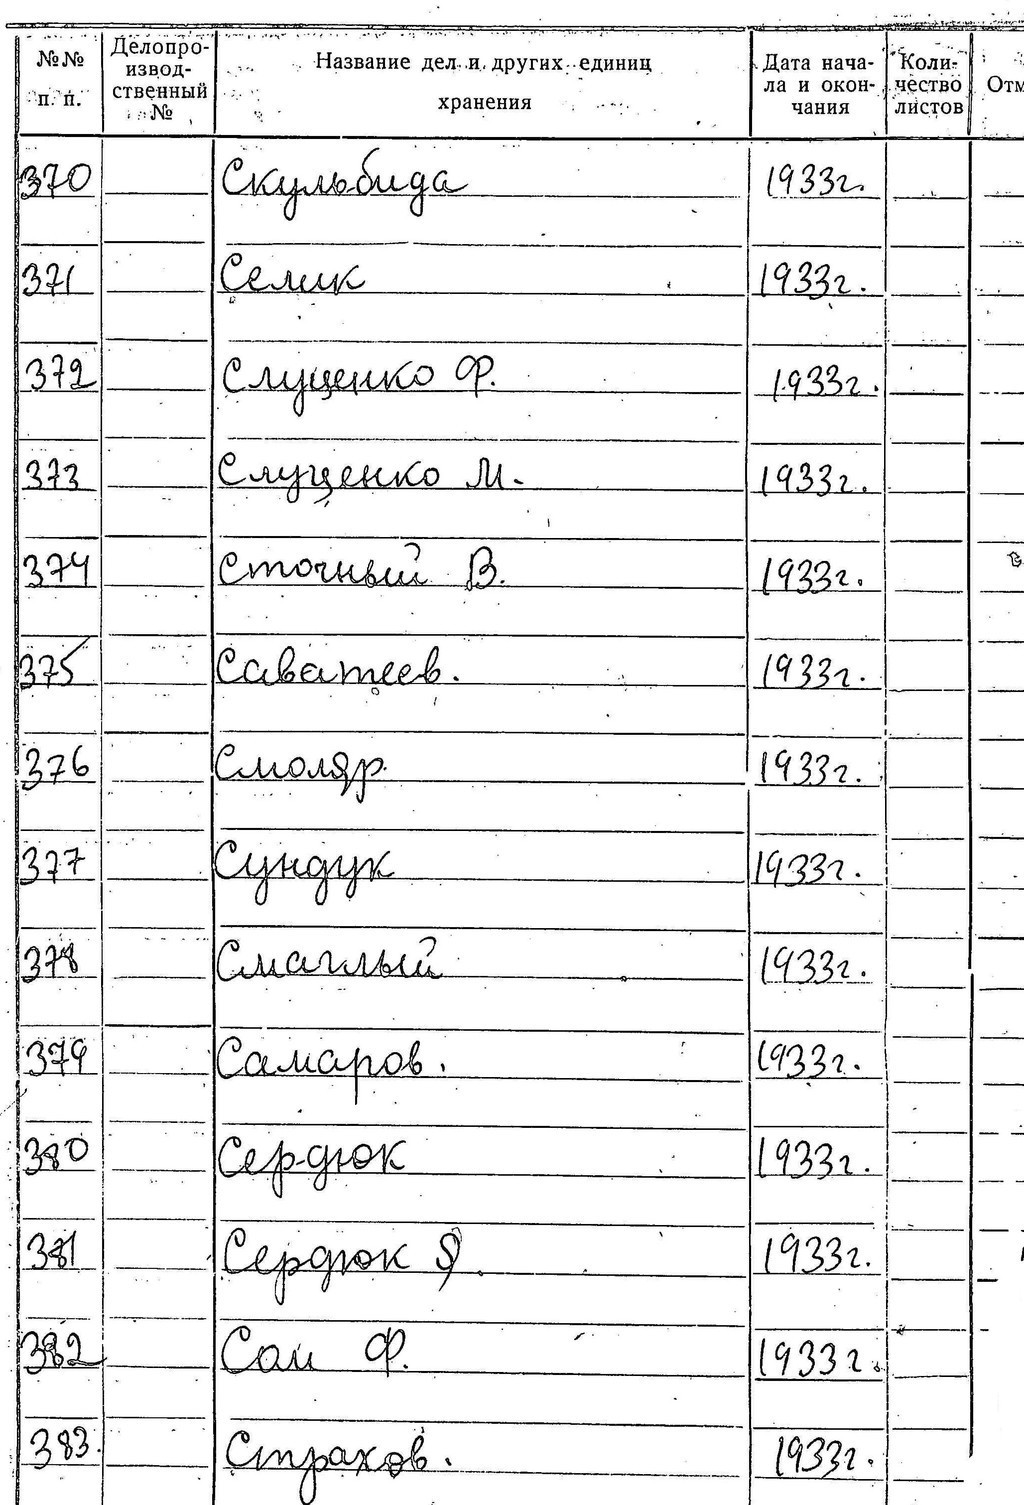 №№ п. п. Делопро- извод- ственный № Название дел и других единиц хранения Дата нача- ла и окон- чания Коли- чество листов Отм
370 Скульбида 1933г.
371 Селик 1933г.
372 Слуценко Ф. 1933г.
373 Слуценко М. 1933г.
374 Сточный В. 1933г.
375 Саватеев. 1933г.
376 Смоляр. 1933г.
377 Сундук 1933г.
378 Смаглый 1933г.
379 Самаров. 1933г.
380 Сердюк 1933г.
381 Сердюк Я. 1933г.
382 Сом Ф. 1933г.
383. Страхов. 1933г.